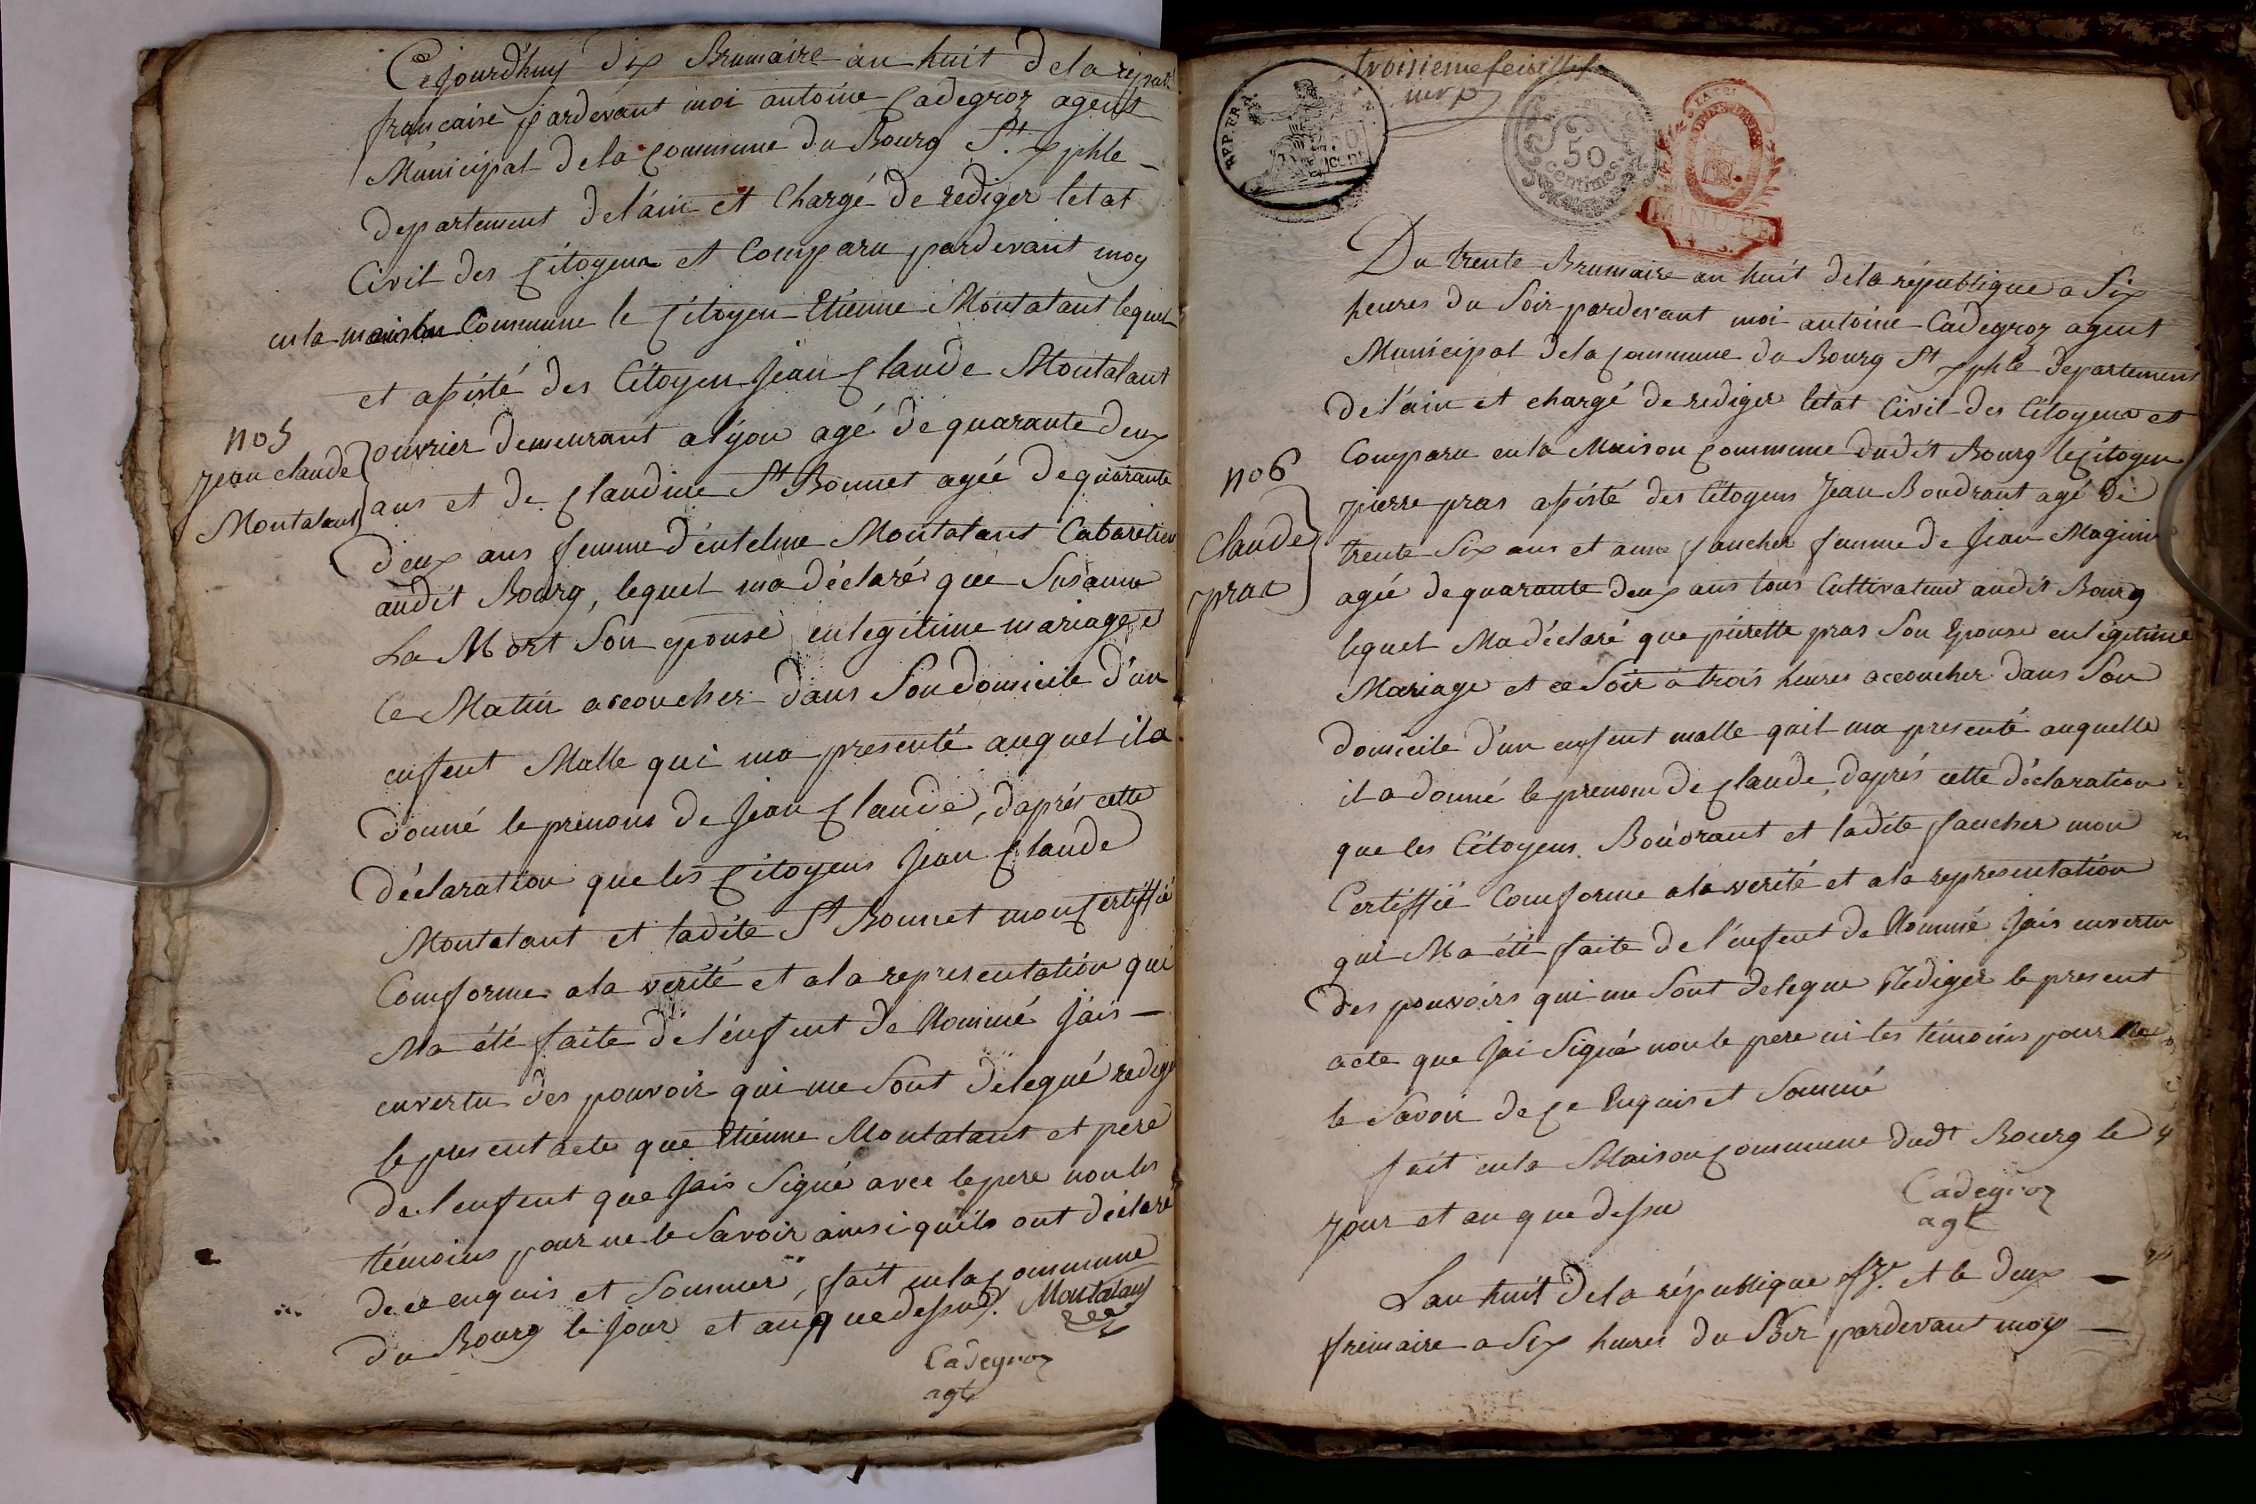 Cejourd'huy dix Brumaire an huit de la répub.
française pardevant moi antoine Cadegroz agent
Municipal de la Commune du Bourg St. xphle
departement de l'ain et Chargé de rediger letat
Civil des Citoyens et Comparu pardevant moy
en la maison Commune le Citoyen Etienne Montalant lequel
et assisté des Citoyen Jean Claude Montalant
no 5
Jean Claude
Montalant
ouvrier demeurant a lyon agé de quarante deux
ans et de Claudine St Bonnet agée de quarante
deux ans femme d'entelme Montalant Cabaretier
audit Bourg, lequel ma déclaré que Susanne
La Mort Son epouse en legitime mariage e
Ce Matin accoucher dans Son domicile d'un
enfent Malle qui ma presenté auquel il a
donné le prenoms de Jean Claude, d'aprés cette
déclaration que les Citoyens Jean Claude
Montalant et ladite St Bonnet mon Certiffié
Comforme a la verité et a la representation qui
Ma été faite de l'enfent de Nommé Jais
en vertu des pouvoir qui me Sont delegué redige
le present acte que Etienne Montalant et pere
de l'enfent que Jais Signé avec le pere non les
témoins pour ne le Savoir ainsi quils ont déclaré
de ce enquis et Sommer, fait en la Commune
du Bourg le Jour et an que dessus. Montalant
Cadegroz
agt
troisieme feuillet
Du trente Brumaire an huit de la république a Six
heures du Soir pardevant moi antoine Cadegroz agent
Municipal de la Commune du Bourg St xphle departement
de l'ain et chargé de rediger letat Civil des Citoyens et
Comparu en la Maison Commune dudit Bourg le Citoyen
no 6
Claude
pras
pierre pras assisté des Citoyens Jean Boudrant agé de
trente Six ans et anne faucher femme de Jean Magnin
agée de quarante deux ans tous Cultivateur audit Bourg
lequel Ma déclaré que pierette pras Son Epouse en légitime
Mariage et ce Soir a trois heures accoucher dans Son
domicile d'un enfent malle quil ma presenté auquelle
il a donné le prenom de Claude, daprés cette déclaration
que les Citoyens Boudrant et ladite faucher mon
Certiffié Comforme a la verité et a la representation
qui Ma été faite de l'enfent de Nommé Jais en vertu
des pouvoirs qui me Sont delegue Rediger le present
acte que Jai Signé non le pere ni les témoins pour ne
le Savoir de Ce Enquis et Sommé
fait en la Maison Commune dudt Bourg le
Jour et an que dessu
Cadegroz
agt
Lan huit de la république fse. et le deux
frimaire a Six heures du Soir pardevant moy
REP. FRA.
50
Centimes
MINUTE